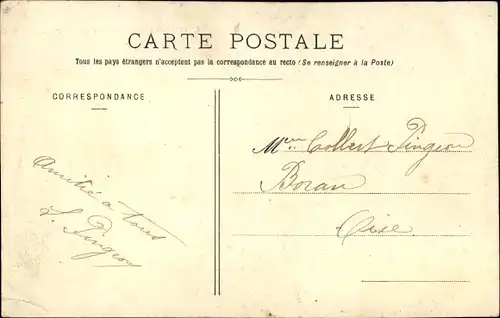 CARTE POSTALE
Tous les pays étrangers n'acceptent pas la correspondance au recto (Se renseigner à la Poste)
CORRESPONDANCE
Amitié à tous
L. Pingeon
ADRESSE
Collert Pingeon
Boran
Oise